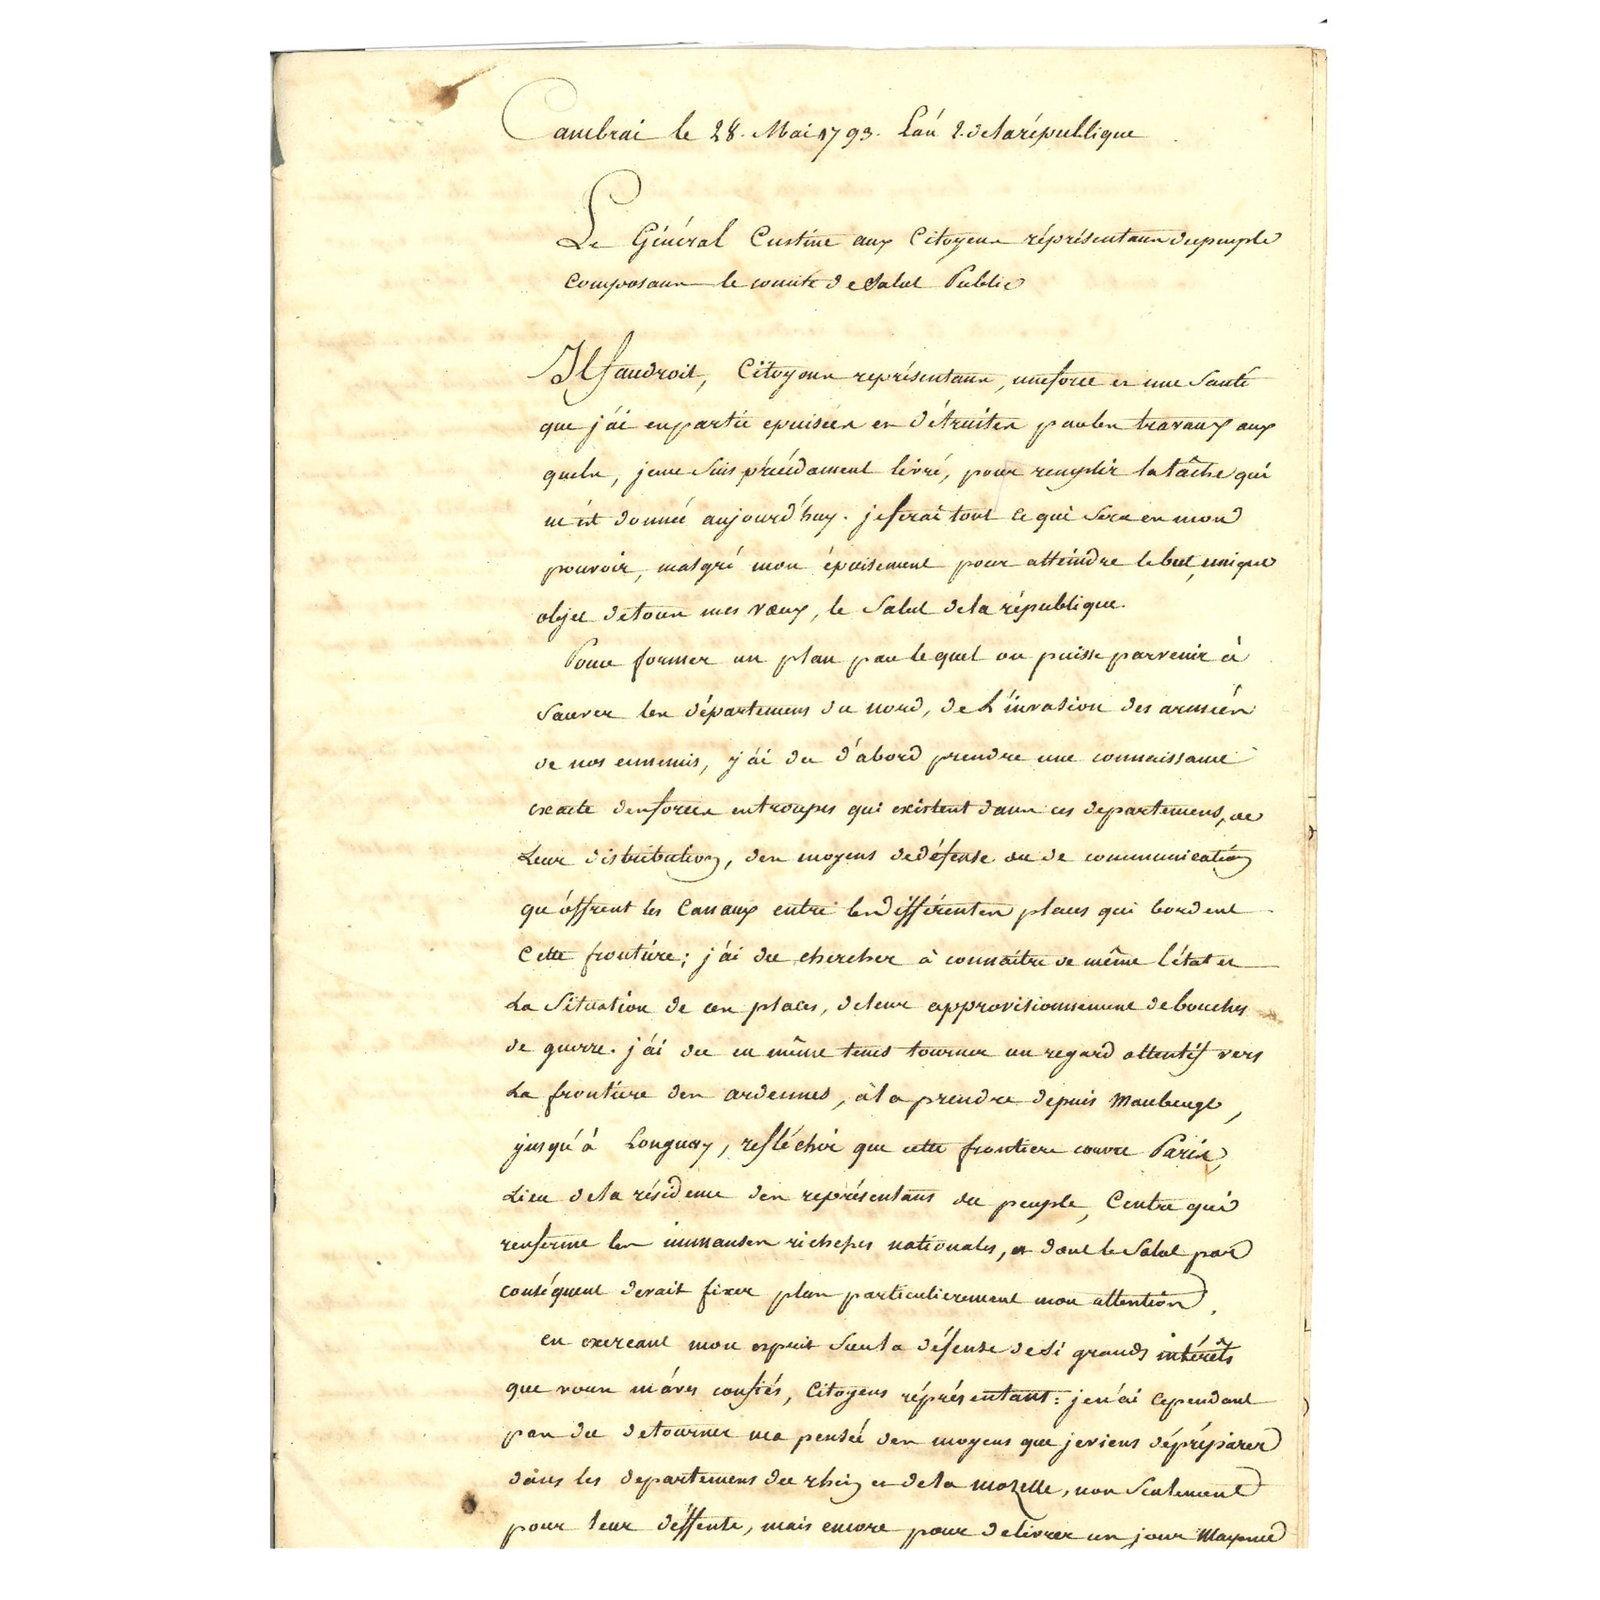 Cambrai le 28. Mai 1793. L'an 2. de la république
Le Général Custine aux Citoyens réprésentans du peuple
composans le comité de Salut Public
Il faudroit, Citoyens représentans, une force et une Santé
que j'ai en partie epuisées et détruites par les travaux aux
quels, je me suis précédament livré, pour remplir la tâche qui
m'est donnée aujourd'huy. je ferai tout ce qui sera en mon
pouvoir, malgré mon épuisement pour atteindre le but, unique
objet de tous mes vœux, le Salut de la république.
Pour former un plan par lequel on puisse parvenir à
sauver les départemens du nord, de L'invasion des armées
de nos ennemis, j'ai du d'abord prendre une connaissance
exacte des forces en troupes qui existent dans ces departemens, de
Leur distribution, des moyens de défense ou de communication
qu'offrent les Canaux entre les différentes places qui bordent
Cette frontière; j'ai du chercher à connaître de même l'état et
La Situation de ces places, de leur approvisionnement de bouche
de guerre. j'ai du en même tems tourner un regard attentif vers
La frontière des ardennes, à la prendre depuis Maubeuge,
jusqu'à Longwy, refléchir que cette frontiere couvre Paris,
Lieu de la résidence des représentans du peuple, Centre qui
renferme les immenses richesses nationales, et dont le Salut par
conséquent devait fixer plus particulierement mon attention.
en exercant mon esprit sur la défense de si grands intérêts
que vous m'avés confiés, Citoyens réprésentant: je n'ai cependant
pas du detourner ma pensée des moyens que je viens dépréparer
dans les departemens du rhin et de la Mozelle, non Seulement
pour leur déffente, mais encore pour delivrer un jour Mayence